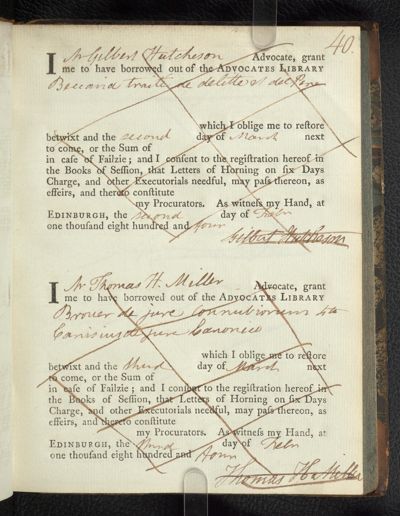 40.
I Mr Gilbert Hutcheson Advocate, grant
me to have borrowed out of the ADVOCATES LIBRARY
Beccaria traité de delitte et del Pene
which I oblige me to reſtore
betwixt and the second day of March next
to come, or the Sum of
in caſe of Failzie; and I conſent to the regiſtration hereof in
the Books of Seſſion, that Letters of Horning on ſix Days
Charge, and other Executorials needful, may paſs thereon, as
effeirs, and thereto conſtitute
my Procurators. As witneſs my Hand, at
EDINBURGH, the second day of Febr
one thouſand eight hundred and four
Gilbert Hutcheson
I Mr Thomas H. Miller Advocate, grant
me to have borrowed out of the ADVOCATES LIBRARY
Brouer de jure Connubiorum 4to
Canisius de jure Canonico
which I oblige me to reſtore
betwixt and the third day of March next
to come, or the Sum of
in caſe of Failzie; and I conſent to the regiſtration hereof in
the Books of Seſſion, that Letters of Horning on ſix Days
Charge, and other Executorials needful, may paſs thereon, as
effeirs, and thereto conſtitute
my Procurators. As witneſs my Hand, at
EDINBURGH, the third day of Febr
one thouſand eight hundred and four
Thomas Ha Miller